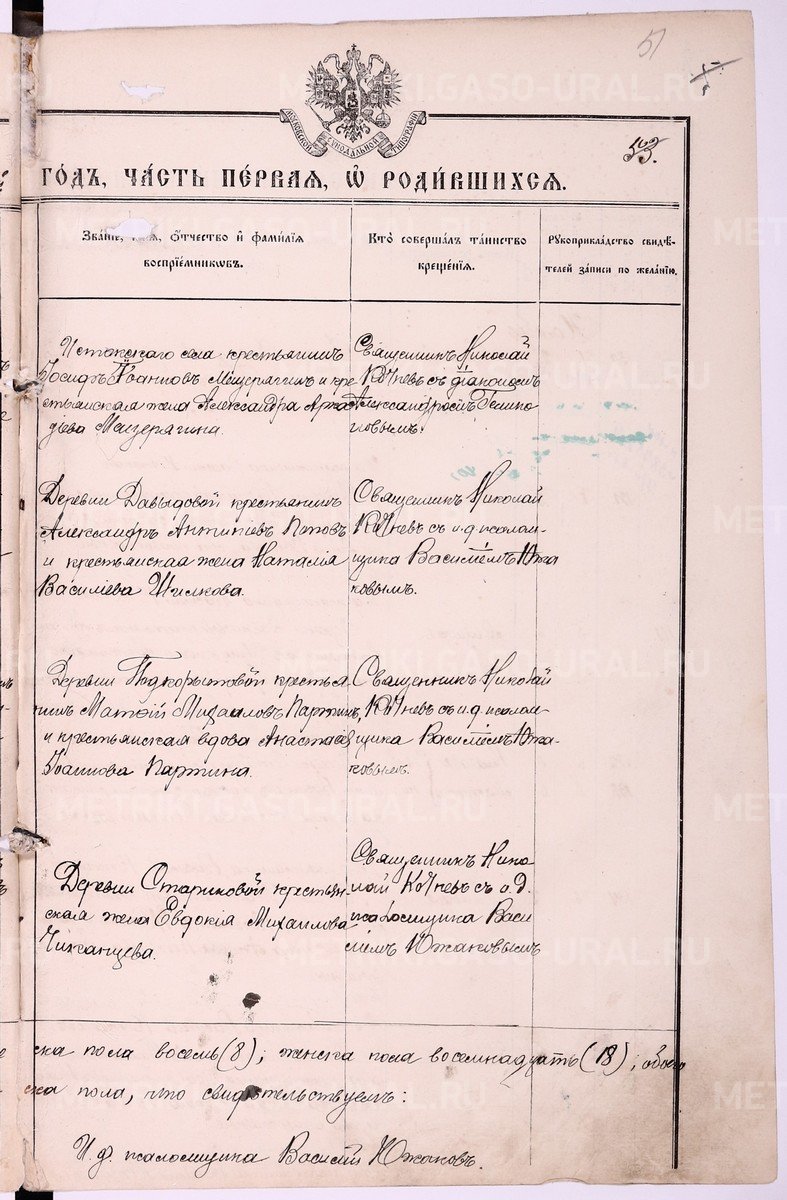 51
53.
МОСКОВСКОЙ СѴНОДАЛЬНОЙ ТИПОГРАФІИ
ГОДЪ, ЧАСТЬ ПЕРВАЯ, Ѽ РОДИВШИХСЯ.
Званіе, имя, отчество и фамилія
воспріемниковъ.
Кто совершалъ таинство
крещенія.
Рукоприкладство свидѣ-
телей записи по желанію.
Истокскаго села крестьянинъ
Іосифъ Іоанновъ Мещерягинъ и кре
стьянская жена Александра Арка
дьева Мещерягина.
Священникъ Николай
Кочневъ съ діакономъ
Александромъ
новымъ.
Деревни Давыдовой крестьянинъ
Александръ Антипіевъ
и крестьянская жена Наталія
Василіева Шилкова.
Священникъ Николай
Кочневъ съ и. д. псалом-
щика Василіемъ Южа
ковымъ.
Деревни Подкорытовой крестья
нинъ Матѳій Михаиловъ Партинъ,
и крестьянская вдова Анастасія
Іоаннова Партина.
Священникъ Николай
Кочневъ съ и. д. псалом-
щика Василіемъ Южа-
ковымъ.
Деревни Стариковой крестьян-
ская жена Евдокія Михаилова
Чиханцева.
Священникъ Нико
лай Кочневъ съ и. д.
псаломщика Васи
ліемъ Южаковымъ
ска пола восемь (8); женска пола восемнадцать (18); обоего
ска пола, что свидѣтельствуемъ:
И. д. псаломщика Василій Южаковъ.
METRIKI.GASO-URAL.RU